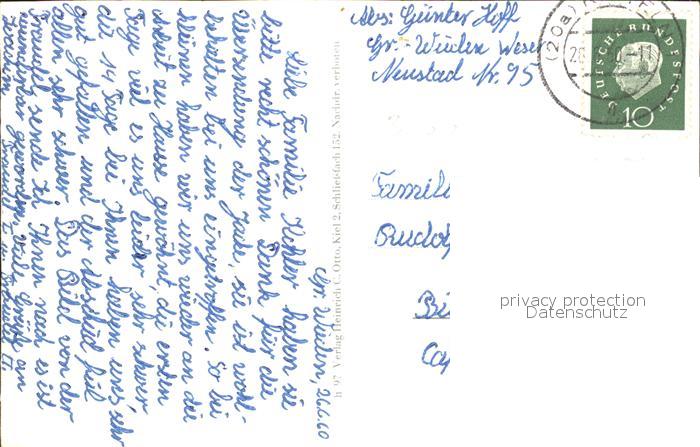 Abs: Günter Hoff
Gr. Wieden Weser
Neustad Nr. 95
(20a)
DEUTSCHE BUNDESPOST
10
Famili
Rudol
Bi
privacy protection
Datenschutz
h 97 Verlag Heinrich C. Otto, Kiel 2, Schließfach 152. Nachdr. verboten
Gr. Wieden, 26.6.60
Liebe Familie Köhler haben sie
bitte recht schönen Dank für die
Übersendung der Jacke, sie ist wohl-
behalten bei uns eingetroffen. So bei
kleinen haben wir uns wieder an die
Arbeit zu Hause gewöhnt, die ersten
Tage viel es uns leider sehr schwer
die 14 Tage bei Ihnen haben uns sehr
gut gefallen und der Abschied fiel
allen sehr schwer. Das Bild von der
Trandel sende ich Ihnen noch es ist
wunderbar geworden. Viele Grüße an